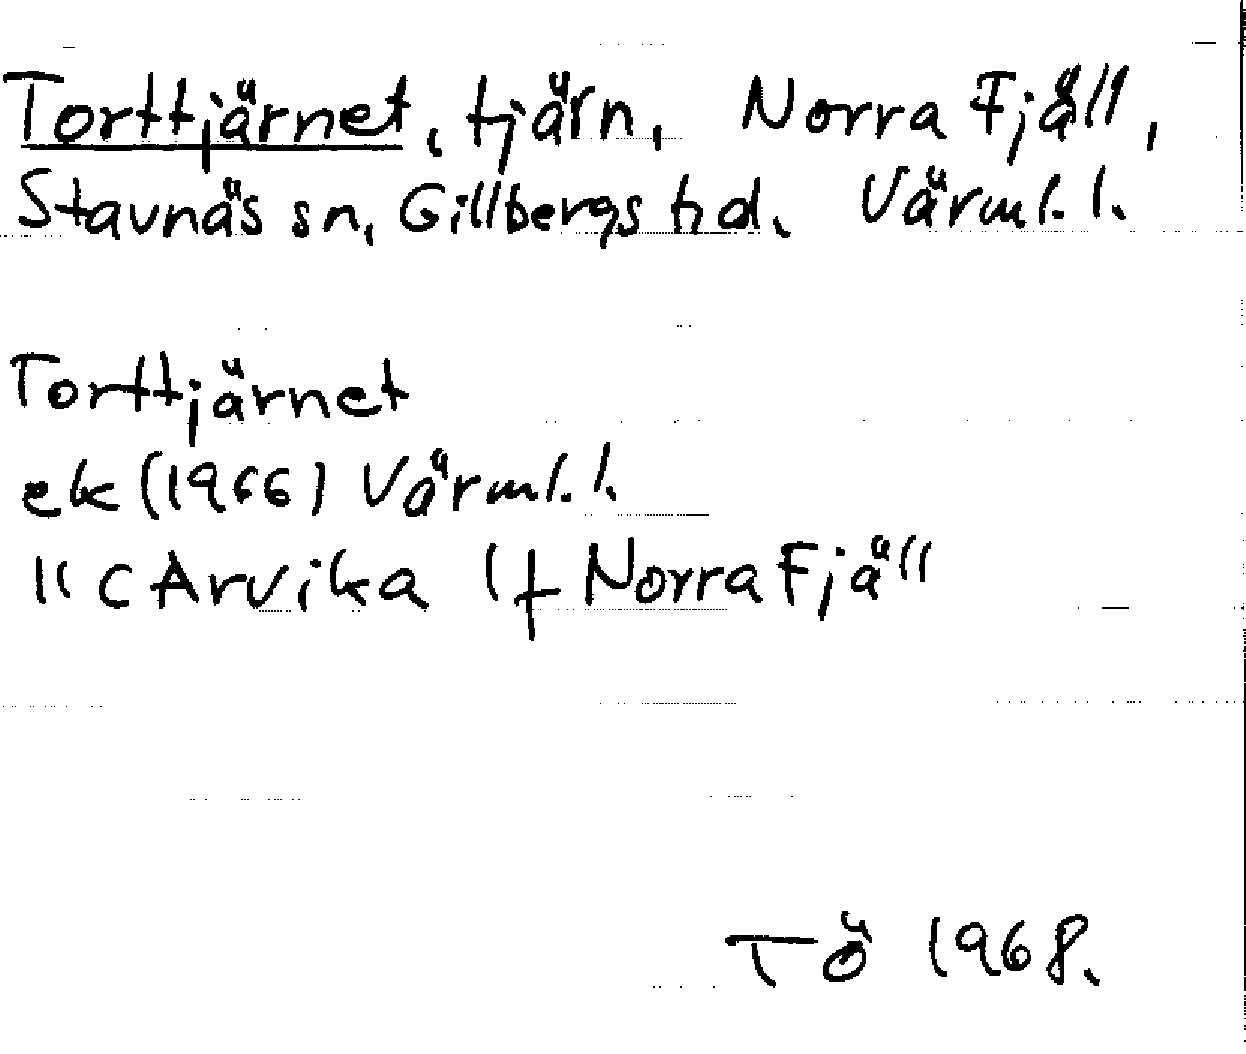 Torttjärnet, tjärn, Norra Fjäll,
Stavnäs sn, Gillbergs hd. Värml. l.
Torttjärnet
ek (1966) Värml. l.
11 C Arvika 1 f Norra Fjäll
TÖ 1968.